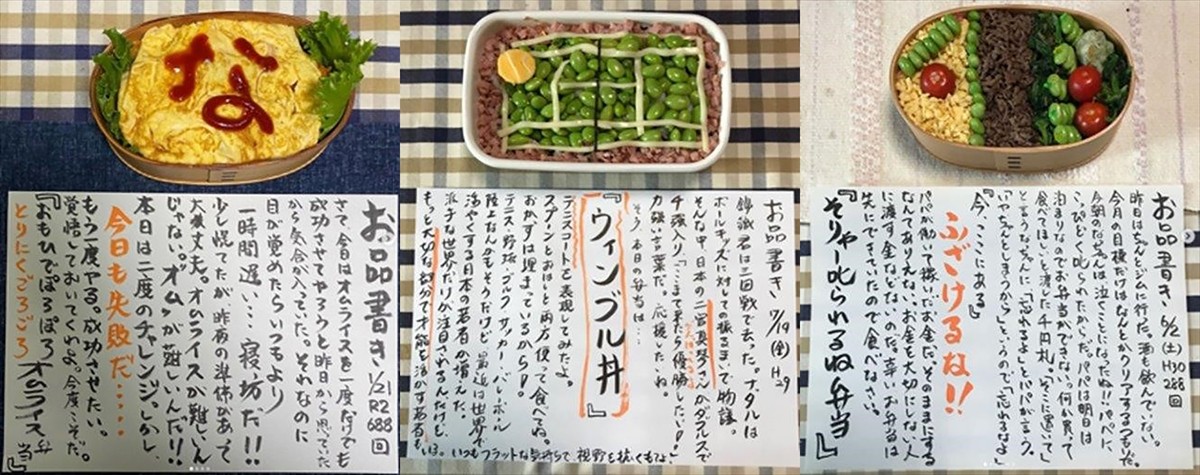 な
お品書き 1/21 R2 688回
さて、今日はオムライスを一度なりでも
成功させてやろうと昨日から思っていた
から気合が入っていた。それなのに
目が覚めたらいつもより
一時間遅い…寝坊だ!!
少し慌てたが昨夜の準備があって
大丈夫。オムライスが難しいん
じゃない。"オム"が難しいんだ!!
本日は二度のチャレンジ。しかし、
今日も失敗だ……
もう一度やる。成功させたい。
覚悟しておいてくれよ。今度こそだ。
とりにくごろごろ
『おもひでぼろぼろオムライス弁当』
お品書き 7/19(金) H29
錦織君は三回戦で去った。ナダルは
ボーキッズに対しての振るまいで物議。
そんな中、日本の二宮真琴さんがダブルスで
千強入り。「ここまで来たら優勝したい!」
力強い言葉だ。応援したいね
そう、本日の弁当は…
『ウィンブル丼』
テニスコートを表現してみたよ。
スプーンとおはしと両方使って食べてね。
おかずは埋まっているからD!
テニス・野球・ゴルフ・サッカー・バレーボール
陸上なんかもそうだけど、最近は世界で
活やくする日本の若者が増えた。
派手な世界だけが注目されるんだけど、
もっと大切な部分で才能を活かす若者
もいる。いつもフラットな気持ちで、視野を拡くもな。
お品書き 6/2(土) H30 288回
昨日はちゃんとジムに行った。酒も飲んでない。
今月の目標だけはなんとかクリアするつもりだ。
今朝のなぎさんは泣くことになったね!!パパに
こっぴどく叱られたから。パパは明日は
泊まりなのでお弁当ができない。何か買って
食べてほしいと渡した千円札。「そこに置いて」
「いや、ちゃんとしまうから」というので「忘れるなよ」
とうなぎちゃんに。「忘れるよ」とパパが言う。
「今、ここにある」
ふざけるな!!
パパが働いて稼いだお金だ。そのままにする
なんてありえない。お金を大切にしない人
に渡す金などないのだ。辛いお弁当は
先にできていたので食べなさい。
『そりゃー叱られるね弁当』